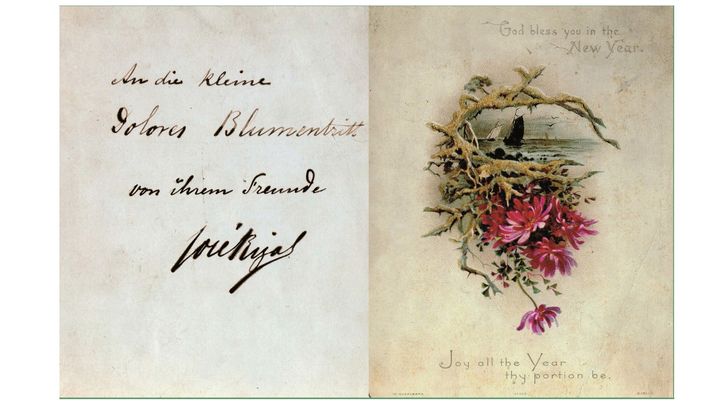 An die kleine
Dolores Blumentritt
von ihrem Freunde
José Rizal
God bless you in the
New Year.
Joy all the Year
thy portion be.